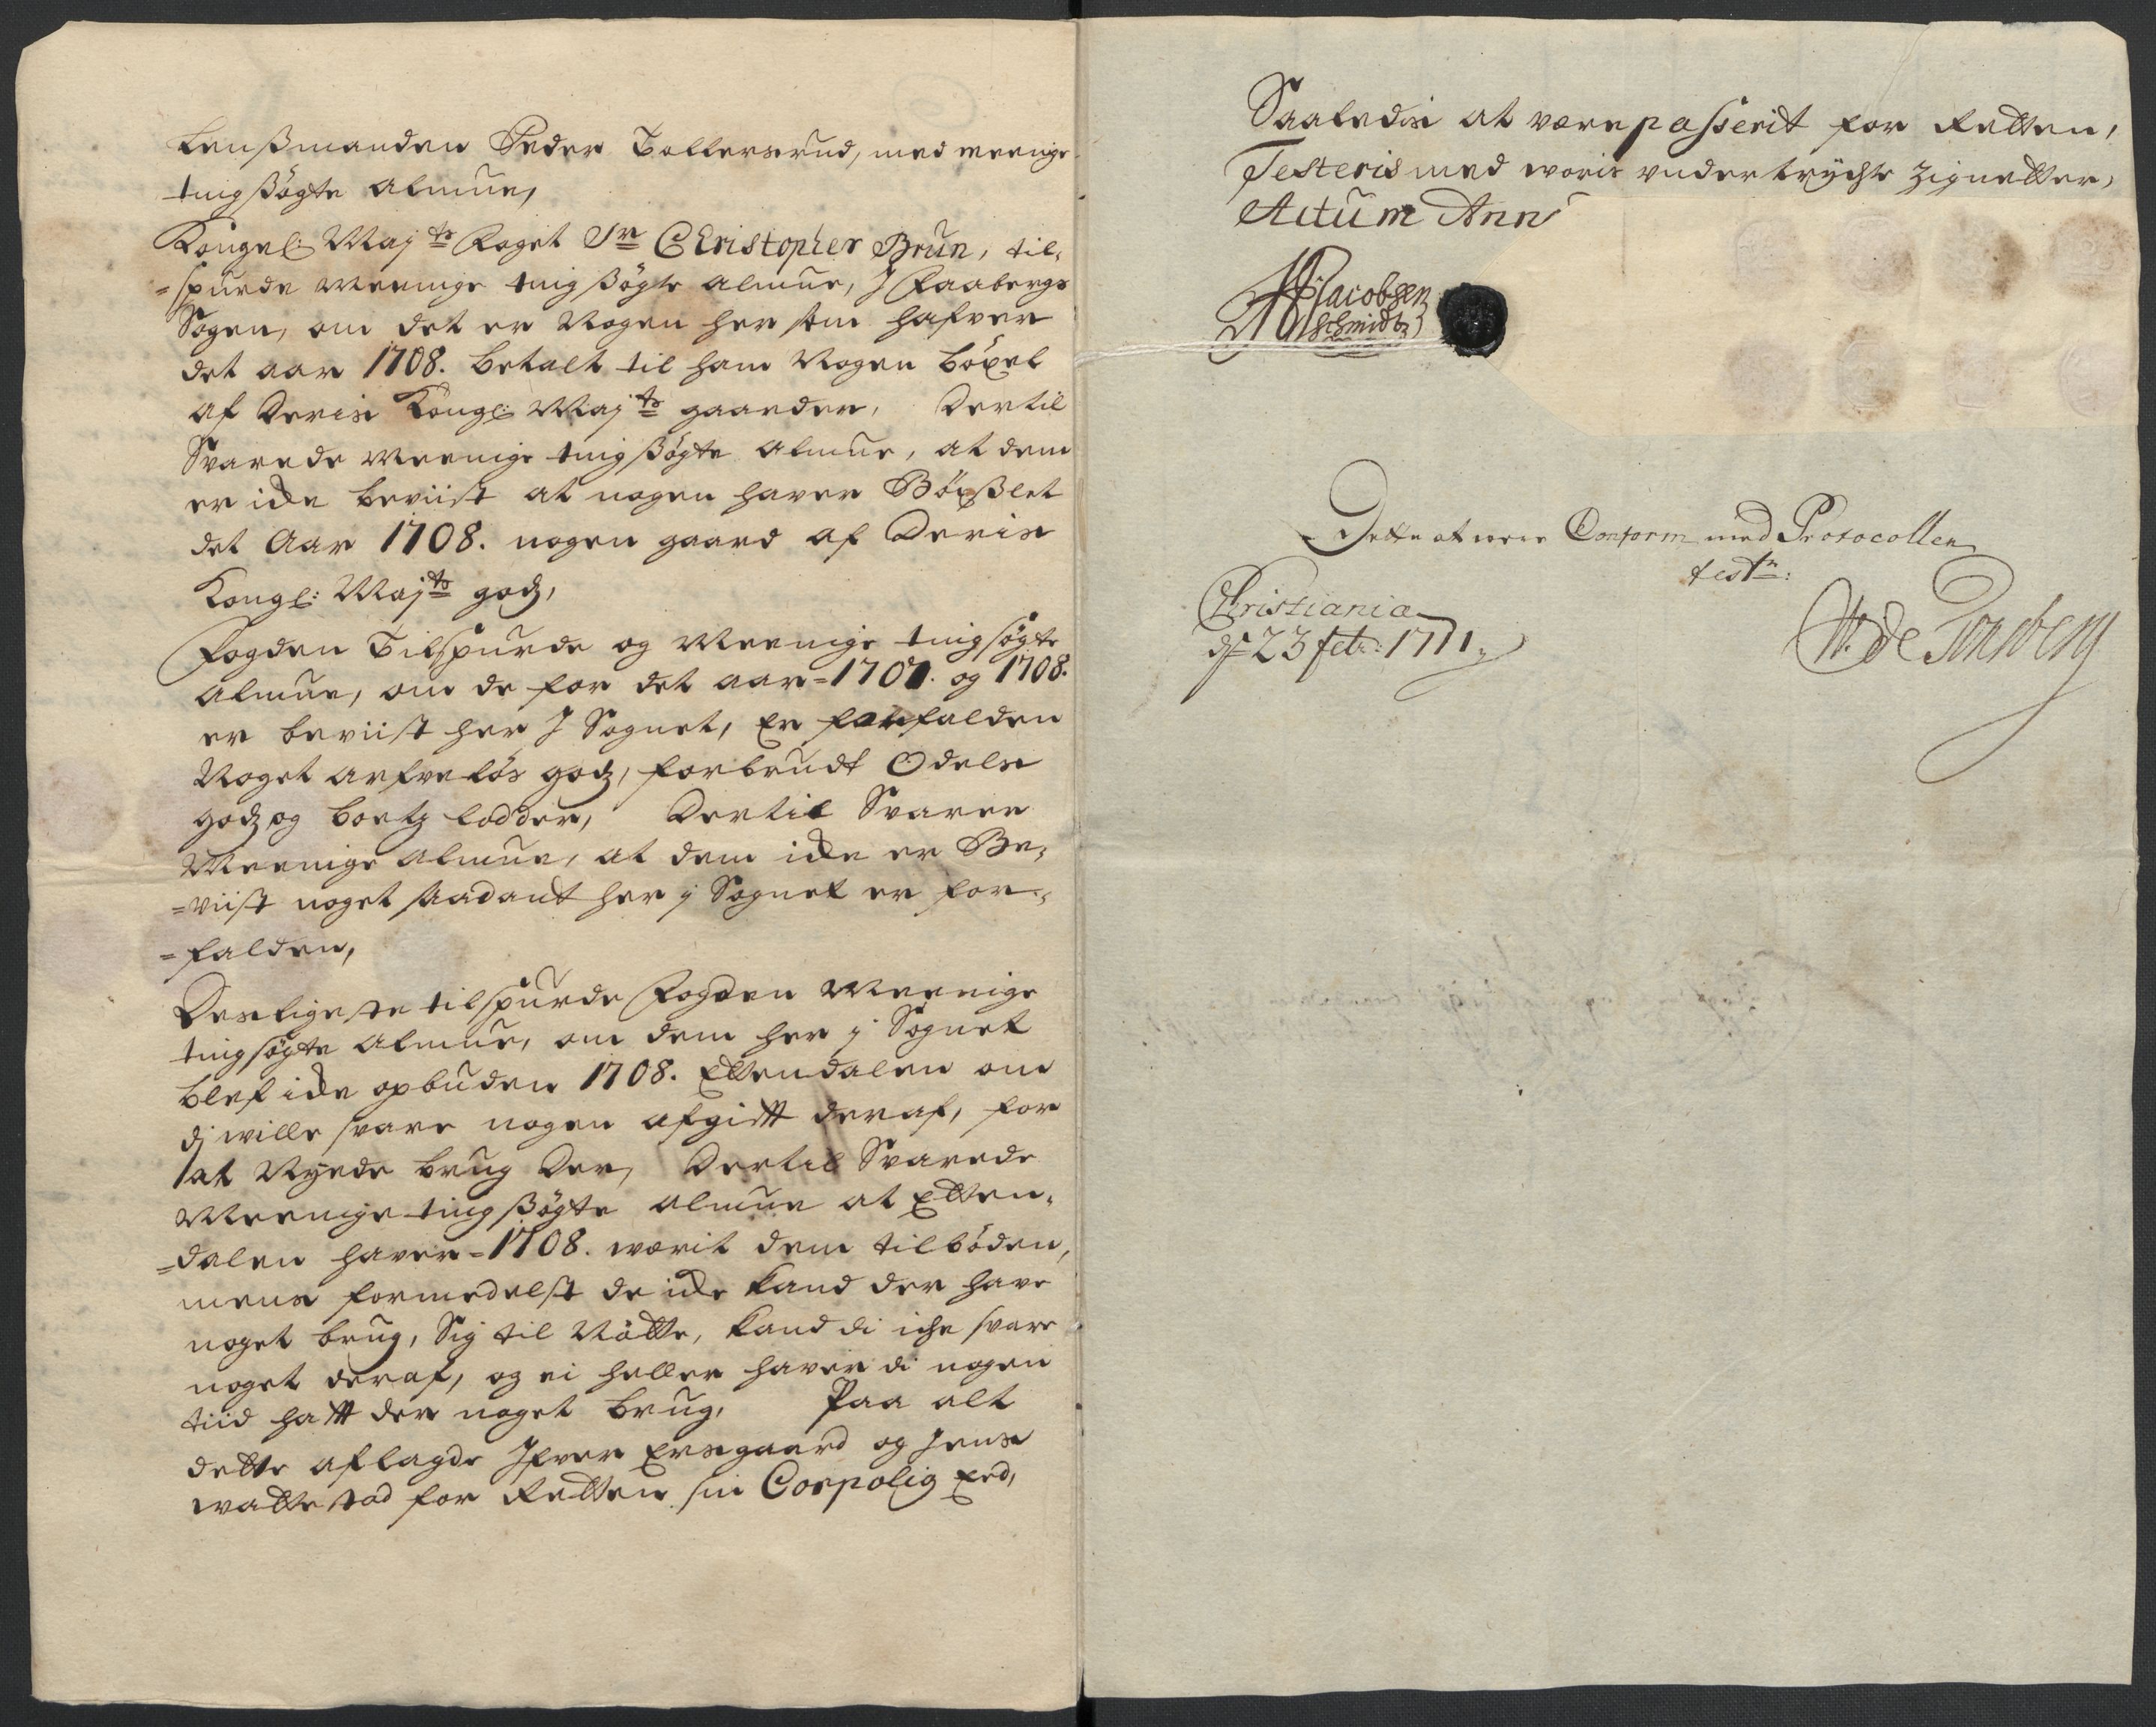 Lenßmanden Peder Tollersrud, med meenige
tingßögte Almue,
Kongel: Maj.ts Foget Sr. Christopher Brun, til-
=spurde Meenige tingßögte Almue, J Faabergs
Sogen, om det er Nogen her som hafver
det aar 1708. betalt til ham Nogen böxel
af Deris Kongl: Maj.ts gaarder, Dertil
Svarede Meenige tingßögte Almue, at dem
er icke beviist at nogen haver Böxßlet
det Aar 1708. nogen gaard af Deris
Kongl: Maj.ts godz,
Fogden Tilspurde og Meenige tingsögte
Almue, om de for det aar=1707. og 1708.
er beviist her J Sognet, Er forfalden
Noget arfveløs godz, forbrudt Odels
godz og boetz lodder, Dertil Svarer
Meenige Almue, at dem icke er Be-
=viist noget saadant her j Sognet er for-
=falden,
Desligeste tilspurde Fogden Meenige
tingsögte Almue, om dem her j Sognet
blef icke opbuden 1708. Ettendalen om
dj wille svare nogen afgift deraf, for
at Nyede brug Der, Dertil Svarede
Meenige tingßögte Almue at Etten-
=dalen haver=1708. wærit dem tilböden,
mens formedelst de icke kand der have
noget brug, Sig til Nötte, kand di iche svare
noget deraf, og ei heller haver di nogen
tiid hafft der noget brug, Paa alt
dette aflagde Jfver Ersgaard og Jens
wattestad for Retten sin Corpolig Eed,
Saaledis at være passerit for Retten,
Testeris med woris under trychte Zignetter,
Actum Ann
Jacobsen
Schmidt
Dette at were Conform med Protocollen
test:
Christiania
d. 23 feb: 1711
W. de Tonsberg